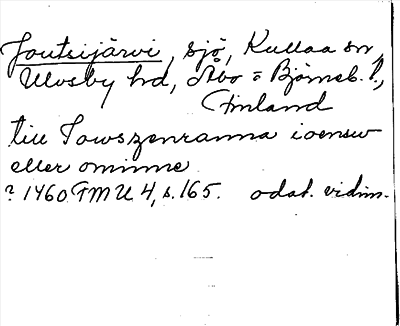 Joutsijärvi, sjö, Kullaa sn,
Ulvsby hd, Åbo o Björneb. l.,
Finland
till Towszenranna ioensw
eller ominne
? 1460 FMU 4, s. 165. odat. vidim.